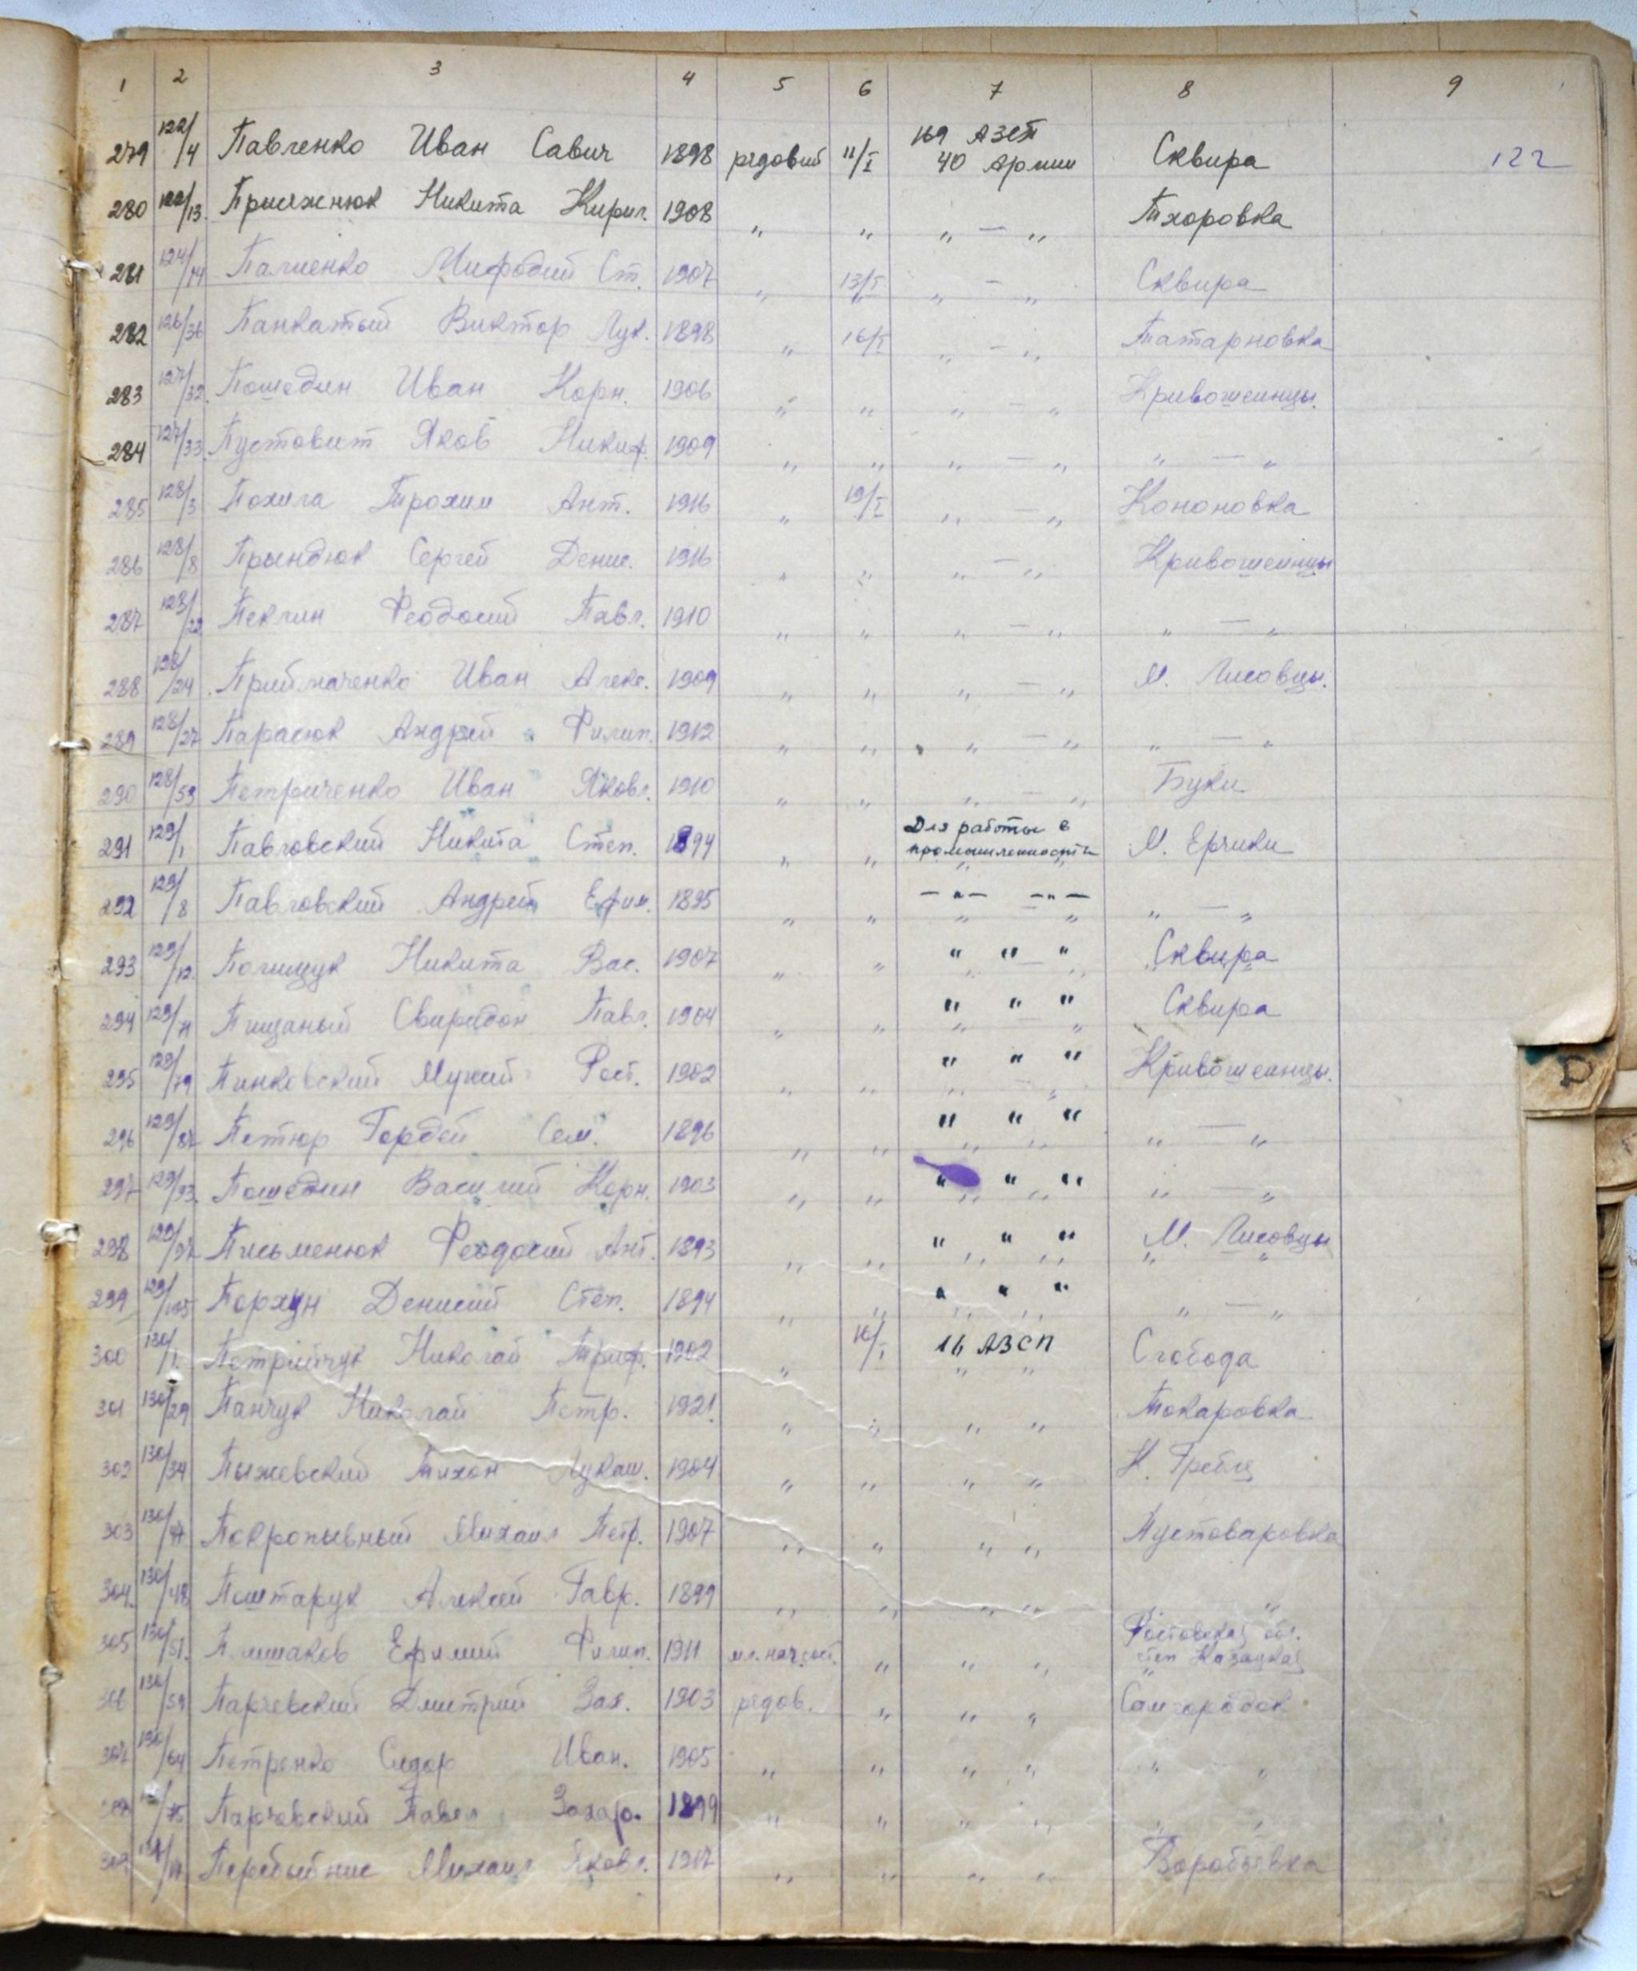 1 2 3 4 5 6 7 8 9
279 122/4 Павленко Иван Савич 1898 рядовый 11/I 169 АЗСП 40 Армии Сквира 122
280 122/13 Присяжнюк Никита Кирил. 1908 " " " — " Тхоровка
281 124/14 Палиенко Мифодий Ст. 1907 " 13/I " — " Сквира
282 126/36 Панкатый Виктор Лук. 1898 " 16/I " — " Татарновка
283 127/32 Пошедин Иван Корн. 1906 " " " — " Кривошеинцы.
284 127/33 Пустовит Яков Никиф. 1909 " " " — " " — "
285 128/3 Похила Трохим Ант. 1916 " 19/I " — " Кононовка
286 128/8 Прындюк Сергей Денис. 1916 " " " — " Кривошеинцы
287 128/22 Пеклин Феодосий Павл. 1910 " " " — " " — "
288 128/24 Приймаченко Иван Алекс. 1909 " " " — " М. Лисовцы.
289 128/27 Парасюк Андрей Филип. 1912 " " " — " " — "
290 128/59 Петриченко Иван Яковл. 1910 " " " — " Буки
291 129/1 Павловский Никита Степ. 1894 " " Для работы в промышленности М. Ерчики
292 129/8 Павловский Андрей Ефим. 1895 " " — " — — " — " — "
293 129/12 Полищук Никита Вас. 1907 " " " " " Сквира
294 129/71 Пищаный Свиридон Павл. 1904 " " " " " Сквира
295 129/79 Пинковский Мукий Рост. 1902 " " " " " Кривошеинцы.
296 129/87 Петнюр Гордей Сем. 1896 " " " " " " — "
297 129/93 Пошедин Василий Корн. 1903 " " " " " " — "
298 129/97 Письменюк Феодосий Ант. 1893 " " " " " М. Лисовцы
299 129/105 Порхун Денисий Степ. 1894 " " " " " " — "
300 130/1 Петрийчук Николай Триф. 1902 " 16/I 16 АЗСП Слобода
301 130/29 Панчук Николай Петр. 1921 " " " " Токаровка
302 130/34 Пыжевский Тихон Лукаш. 1904 " " " " К. Гребля
303 130/47 Покропывный Михаил Петр. 1907 " " " " Пустоваровка
304 130/48 Поштарук Алексей Гавр. 1899 " " " " "
305 130/51 Ефимий Филип. 1911 мл. нач. сост. " " " Ростовская обл. Казацкая
306 130/59 Парчевский Дмитрий Зах. 1903 рядов. " " " Самгородок
307 130/64 Петренко Сидор Иван. 1905 " " " " " "
308 /75 Парчевский Павел Захар. 1899 " " " " " "
309 Перебыйнис Михаил Яковл. 1917 " " " " Воробьевка